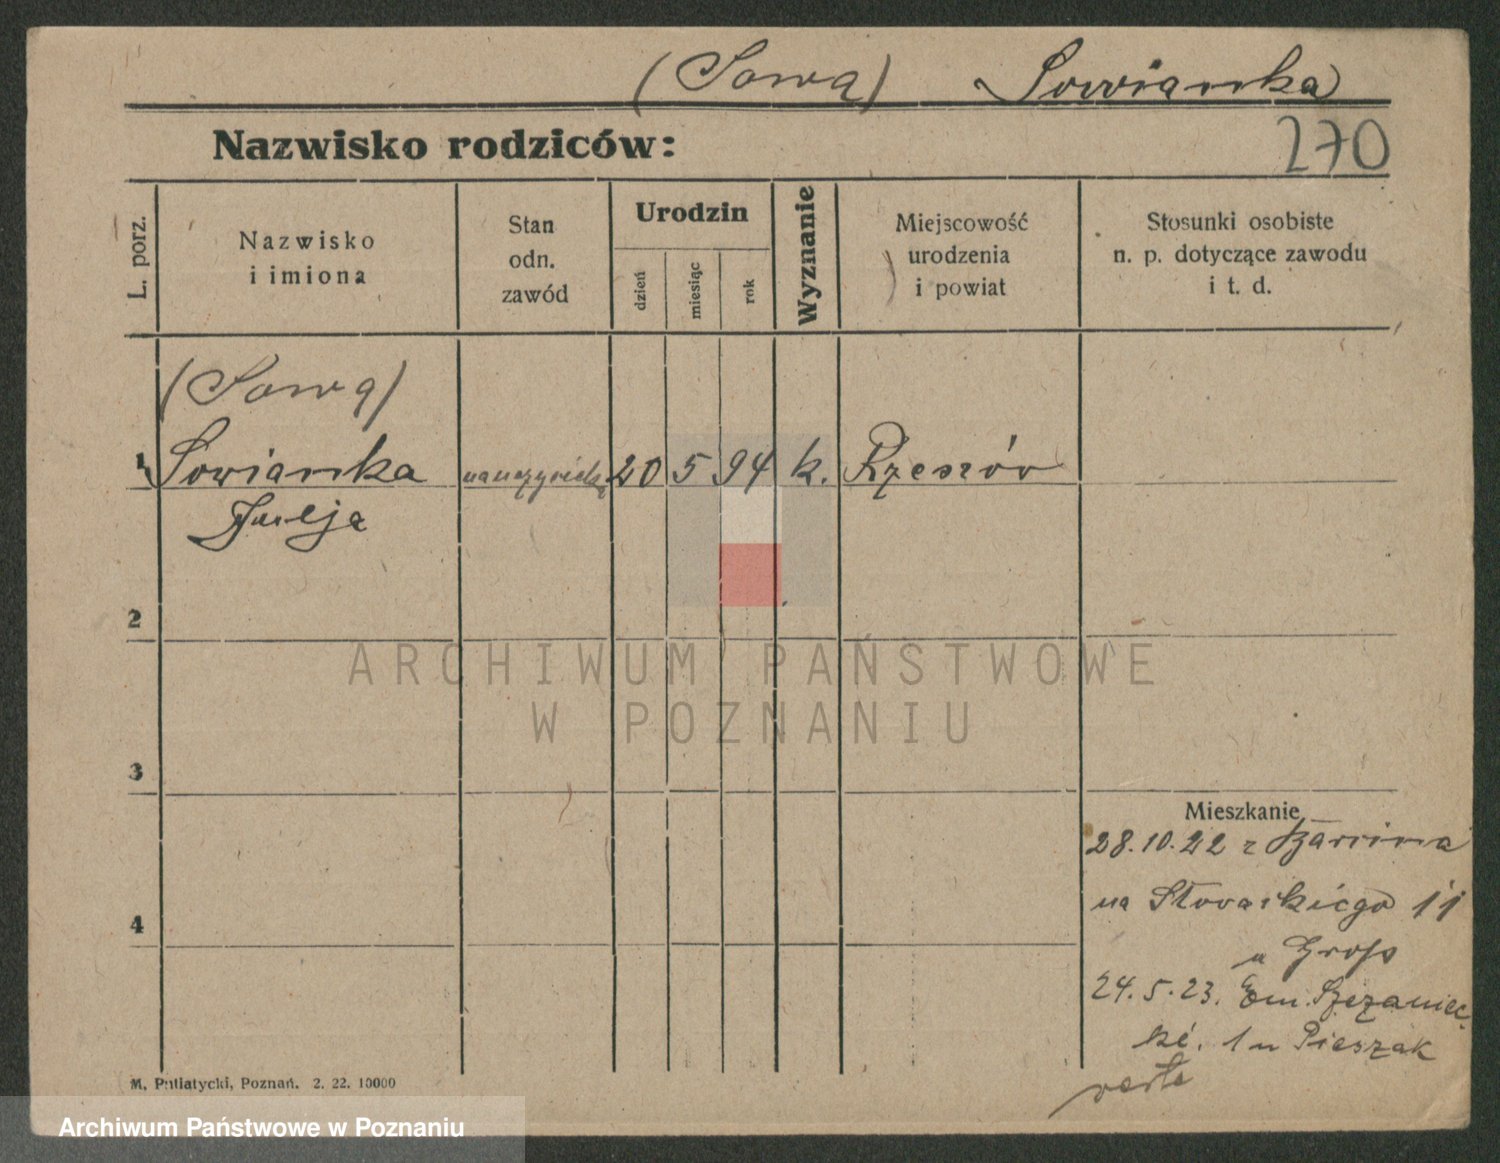 (Sową) Sowianka
Nazwisko rodziców:
270
L. porz.
Nazwisko
i imiona
Stan
odn.
zawód
Urodzin
dzień
miesiąc
rok
Wyznanie
Miejscowość
urodzenia
i powiat
Stosunki osobiste
n. p. dotyczące zawodu
i t. d.
(Sową)
1 Sowianka 20 5 94 k. Rzeszów
Julja
2
3
4
Mieszkanie
28.10.22 z
na Słowackiego 11
u Gross
24.5.23. Em. Szczaniec
kiej. 1 u Pieszak
verte
M. Putiatycki, Poznań. 2. 22. 10000
ARCHIWUM PAŃSTWOWE
W POZNANIU
Archiwum Państwowe w Poznaniu